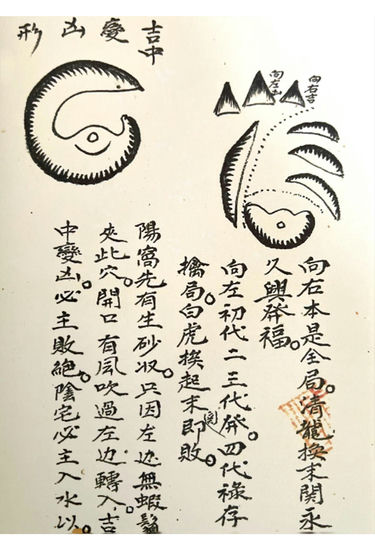 向右吉
向左
向右本是全局。清龍換末関永
久興發福。
向左初代二三代發。四代祿存
擒局。白虎換起末関即敗。
吉中變凶形
陽窩先有生砂收。只因左边無蝦鬚
夾此穴。開口有風吹過左边轉入。吉
中變凶。必主敗絕。陰宅必主入水以。